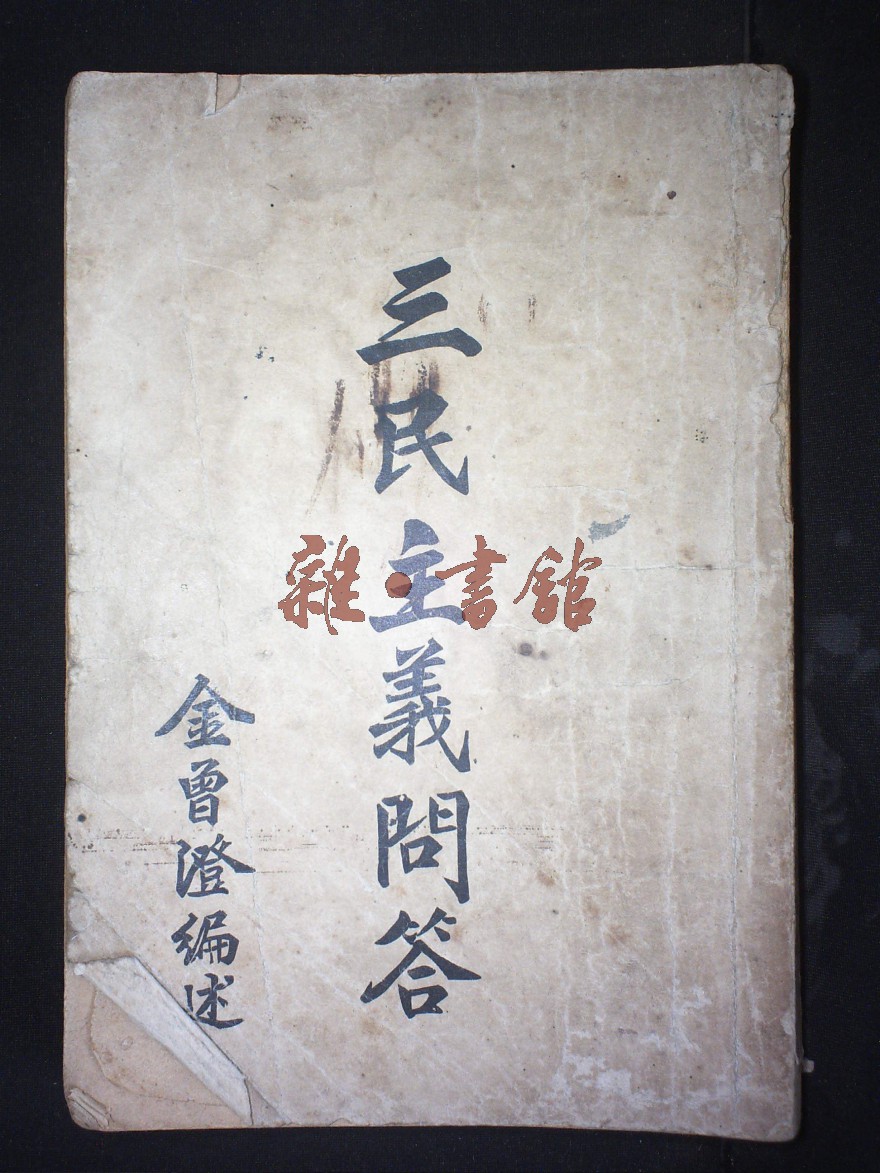 三民主義問答
金曾澄編述
雜·書館